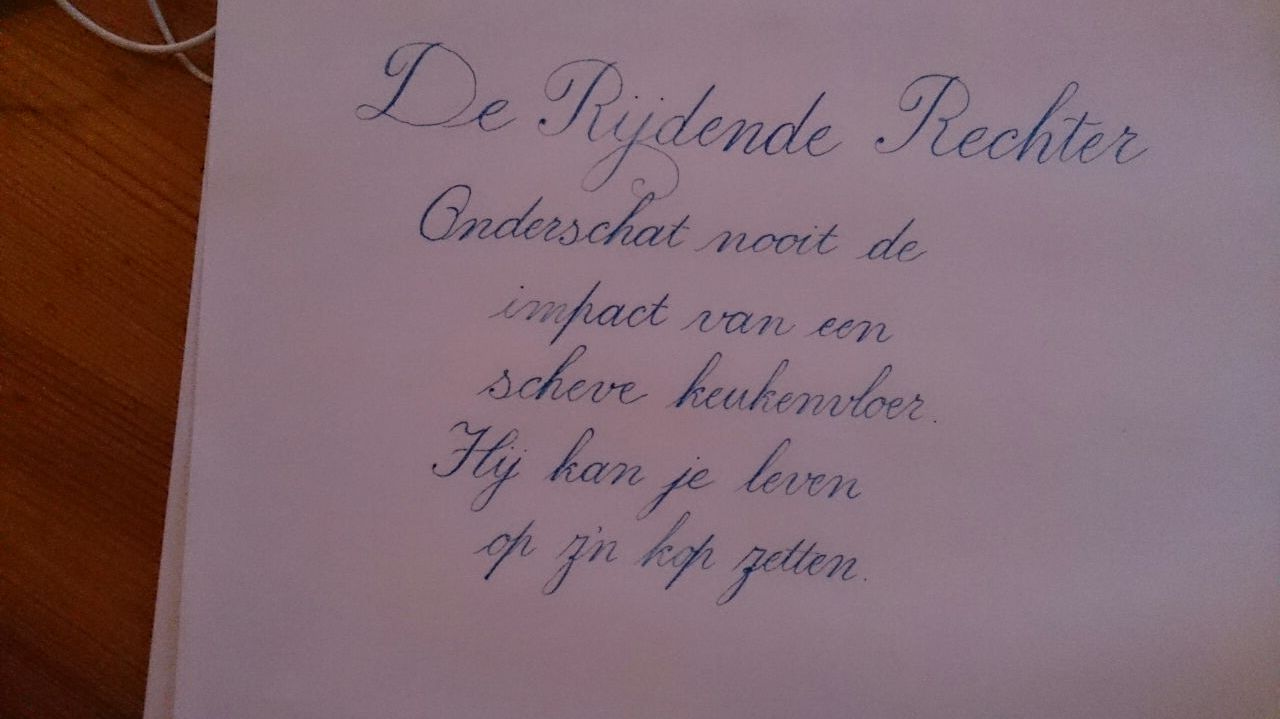 De Rijdende Rechter
Onderschat nooit de
impact van een
scheve keukenvloer.
Hij kan je leven
op z'n kop zetten.